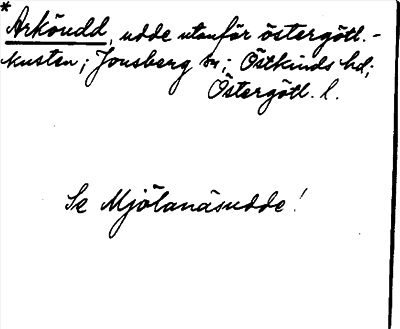 * Arköudd, udde utanför östergötl.-
kusten; Jonsberg sn; Östkinds hd;
Östergötl. l.
Se Mjölanäsudde!